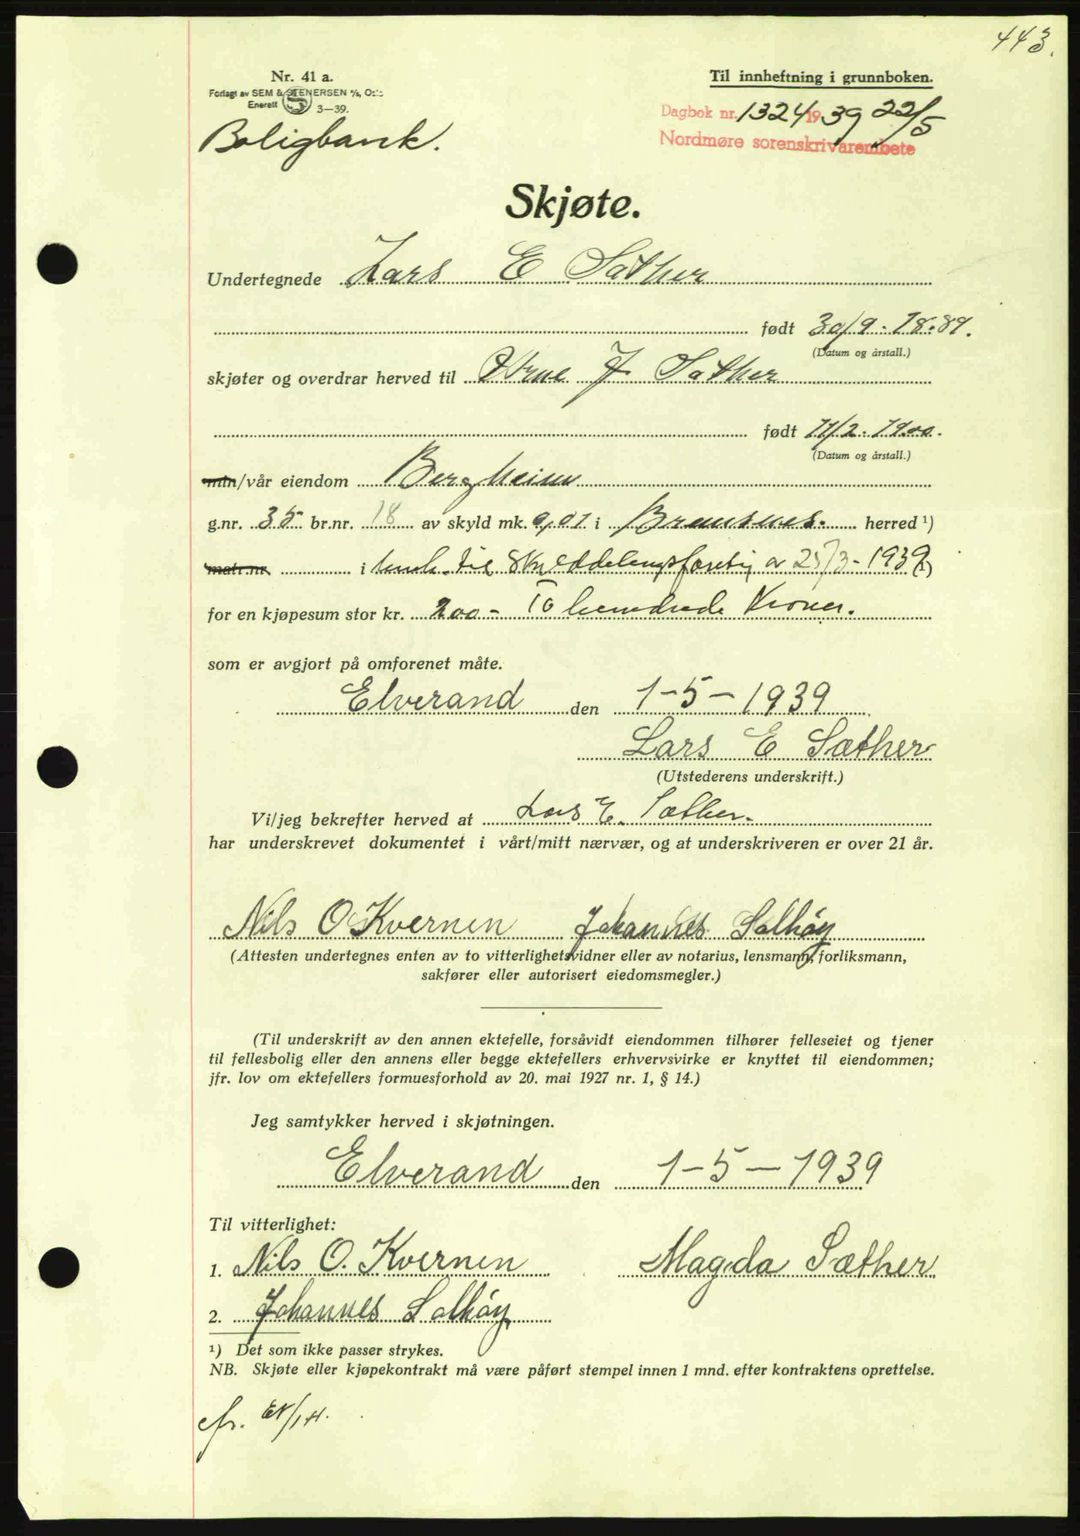 443.
Nr. 41 a.
Forlagt av SEM & STENERSEN A/S, Oslo
Enerett
3—39.
Til innheftning i grunnboken.
Dagbok nr. 1324 1939 22/5
Nordmøre sorenskrivarembete
Boligbank.
Skjøte.
Undertegnede Lars E Sæther
født 30/9. 18.89.
(Datum og årstall.)
skjøter og overdrar herved til Arne J Sæther
født 11/2. 1900.
(Datum og årstall.)
min/vår eiendom Bergheim
g.nr. 35 br.nr. 18 av skyld mk. 0,01 i Bremsnes. herred ¹)
matr.nr. i henh. til Skylddelingsforretn. av 25/3-1939 ¹)
for en kjøpesum stor kr. 200- To hundrede Kroner.
som er avgjort på omforenet måte.
Elverand den 1-5-1939
Lars E Sæther
(Utstederens underskrift.)
Vi/jeg bekrefter herved at Lars E. Sæther.
har underskrevet dokumentet i vårt/mitt nærvær, og at underskriveren er over 21 år.
Nils O Kvernen Johannes Solhöy
(Attesten undertegnes enten av to vitterlighetsvidner eller av notarius, lensmann, forliksmann,
sakfører eller autorisert eiedomsmegler.)
(Til underskrift av den annen ektefelle, forsåvidt eiendommen tilhører felleseiet og tjener
til fellesbolig eller den annens eller begge ektefellers erhvervsvirke er knyttet til eiendommen;
jfr. lov om ektefellers formuesforhold av 20. mai 1927 nr. 1, § 14.)
Jeg samtykker herved i skjøtningen.
Elverand den 1-5-1939
Til vitterlighet:
1. Nils O. Kvernen Magda Sæther
2. Johannes Solhöy
¹) Det som ikke passer strykes.
NB. Skjøte eller kjøpekontrakt må være påført stempel innen 1 mnd. efter kontraktens oprettelse.